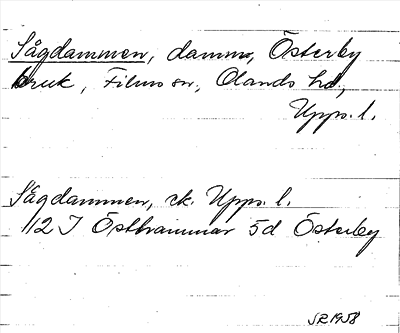 Sågdammen, damm, Österby
bruk, Films sn, Olands hd,
Upps. l.
Sågdammen, rk. Upps. l.
12 I Östhammar 5d Österby
SR 1958